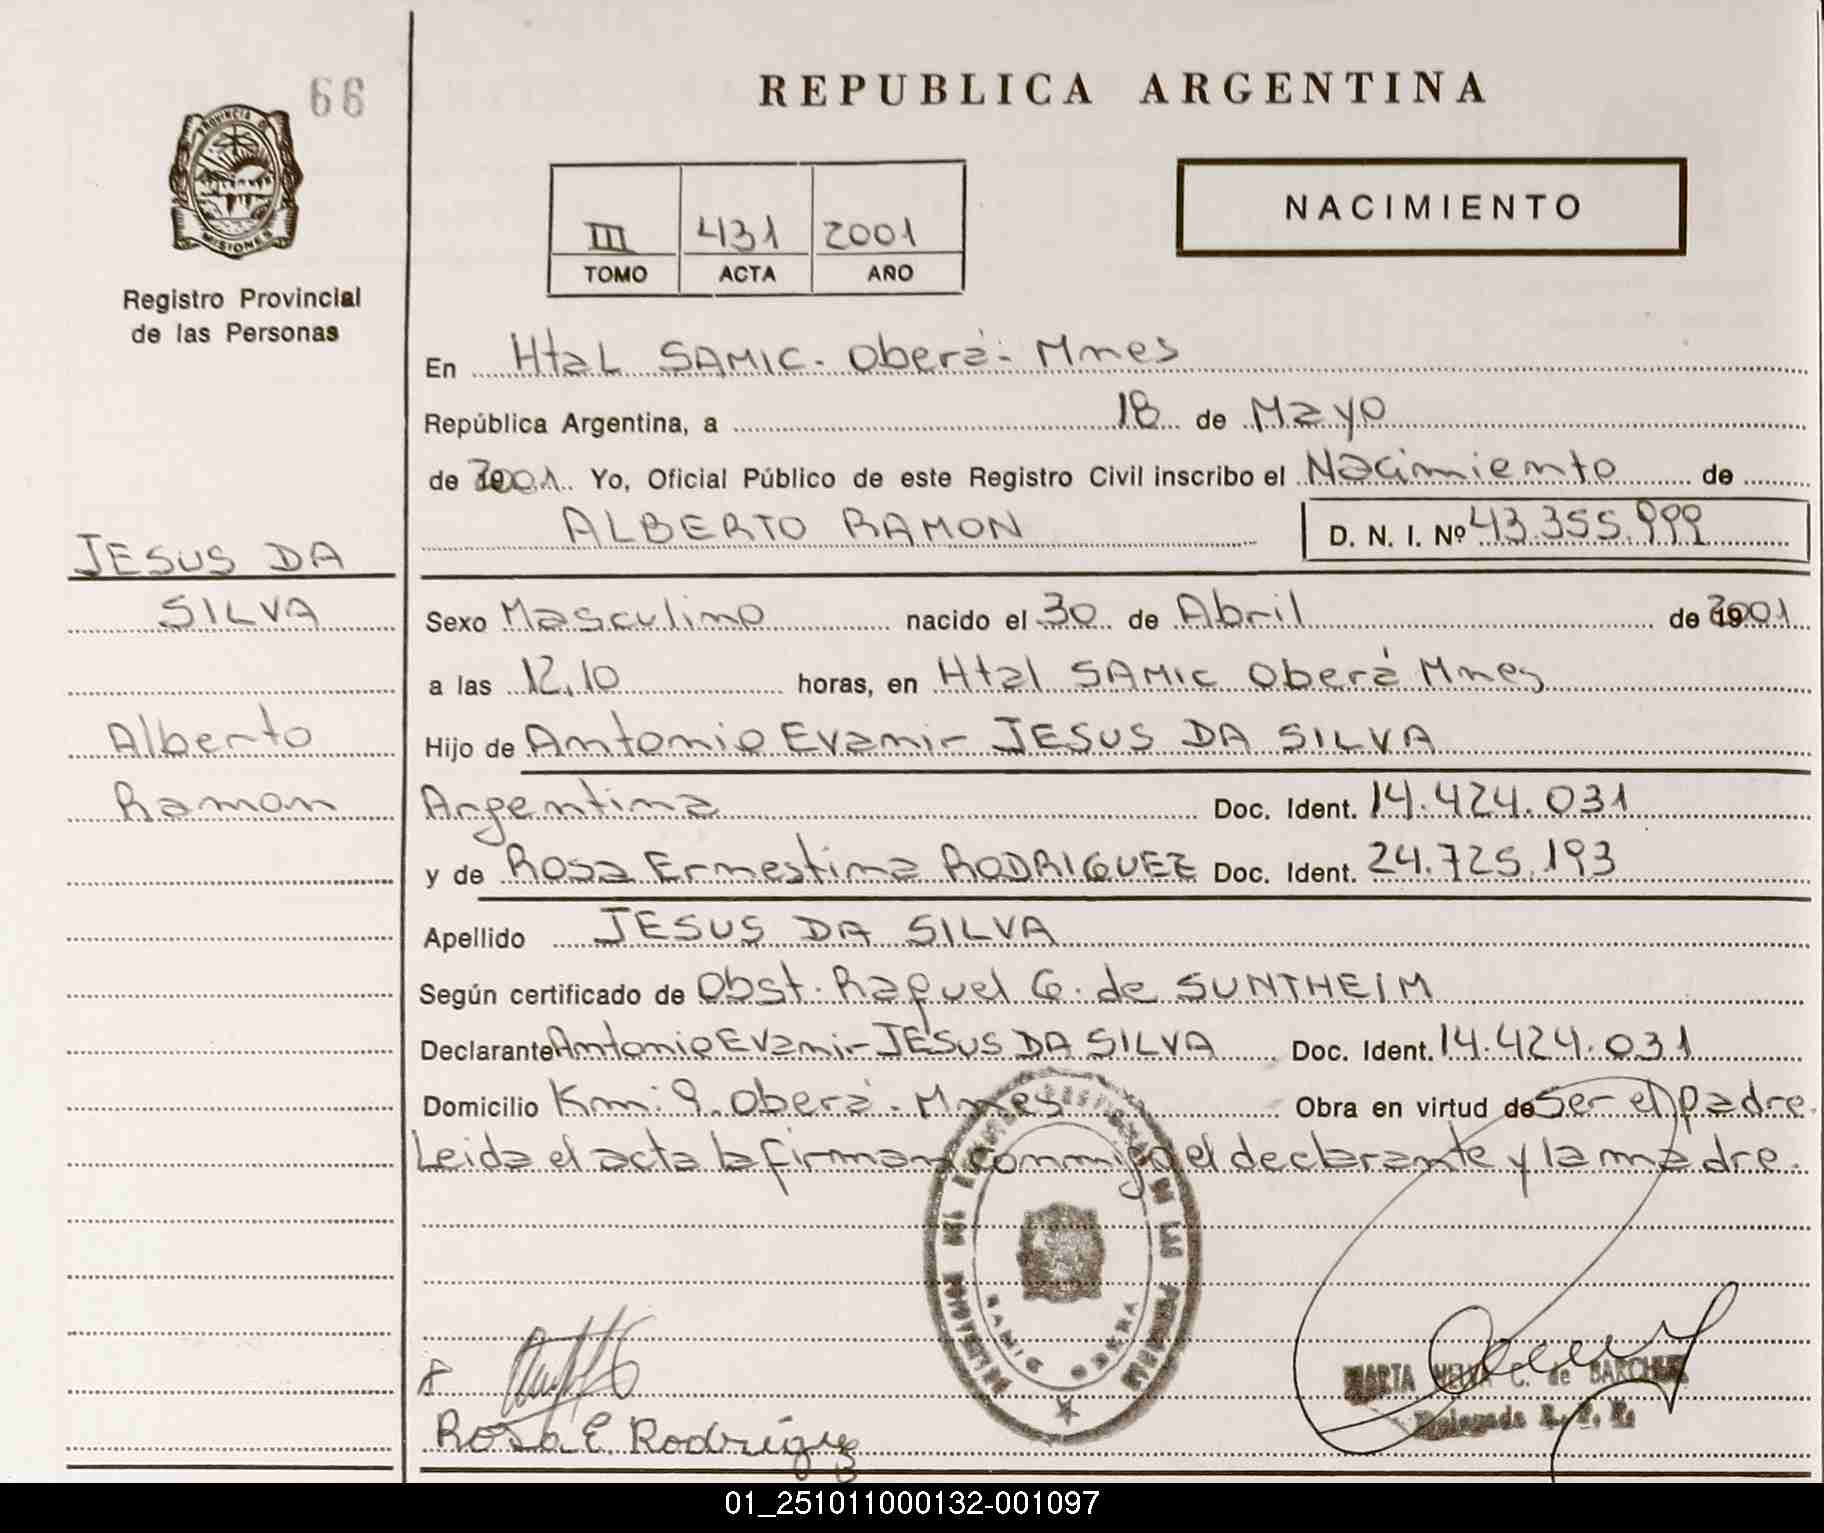 66
REPUBLICA ARGENTINA
PROVINCIA DE
MISIONES
Registro Provincial
de las Personas
III 431 2001
TOMO ACTA AÑO
NACIMIENTO
En Htal SAMIC. Oberá. Mnes
República Argentina, a 18 de Mayo
de 2001. Yo, Oficial Público de este Registro Civil inscribo el Nacimiento de
ALBERTO RAMON D. N. I. Nº 43.355.999
JESUS DA
SILVA
Alberto
Ramon
Sexo Masculino nacido el 30 de Abril de 2001
a las 12,10 horas, en Htal SAMIC Oberá Mnes
Hijo de Antonio Evanir JESUS DA SILVA
Argentina Doc. Ident. 14.424.031
y de Rosa Ernestina RODRIGUEZ Doc. Ident. 24.725.193
Apellido JESUS DA SILVA
Según certificado de Obst. Raquel G. de SUNTHEIM
Declarante Antonio Evanir JESUS DA SILVA Doc. Ident. 14.424.031
Domicilio Km: 9. Oberá. Mnes Obra en virtud de Ser el padre.
Leida el acta la firman conmigo el declarante y la madre.
MARTA C. de
Delegada R. P. P.
Rosa E Rodriguez
01_251011000132-001097